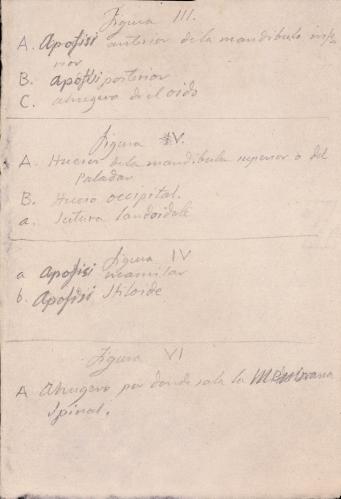 Figura III.
A. Apofisi anterior de la mandibula infe-
rior
B. Apofisi posterior
C. abugero del oido
Figura IV.
A. Huesos de la mandibula superior o del
Paladar
B. Hueso occipital.
a. Sutura landoidale
Figura IV
a Apofisi mamilar
b. Apofisi Stiloide
Figura VI
A Abugero por donde sale la Membrana
Spinal.